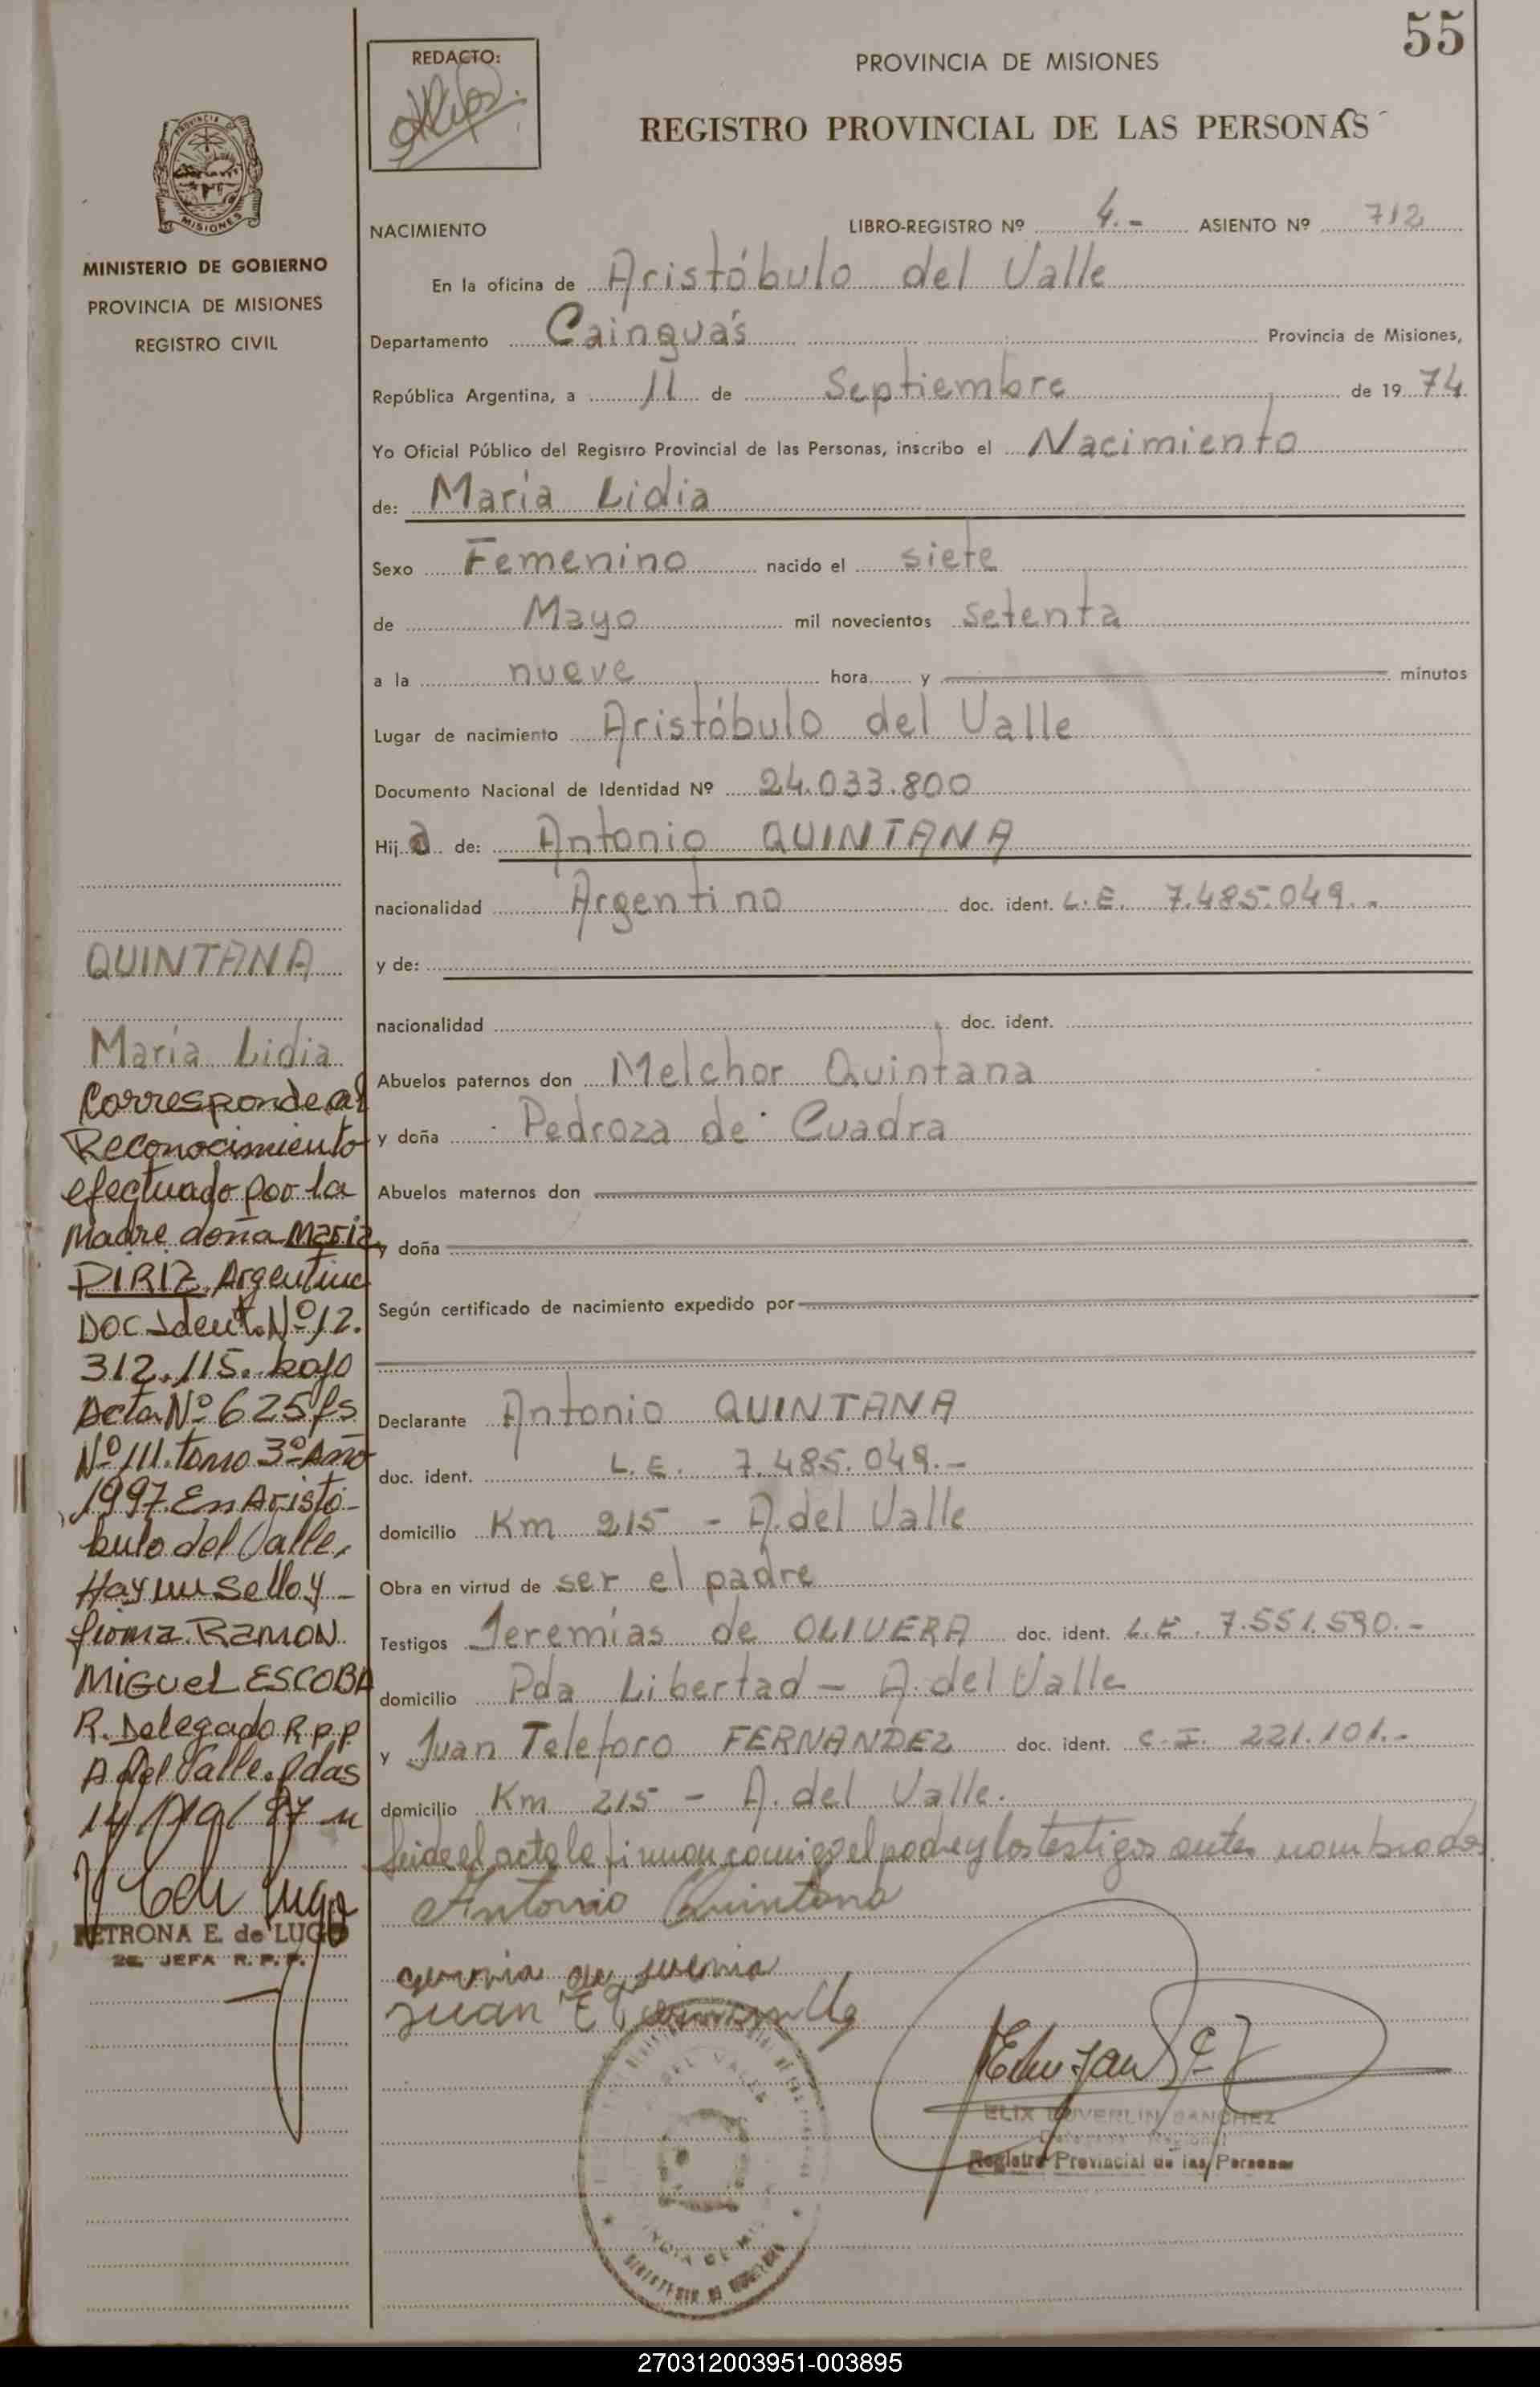 55
REDACTO:
PROVINCIA DE MISIONES
REGISTRO PROVINCIAL DE LAS PERSONAS
MISIONES
MINISTERIO DE GOBIERNO
PROVINCIA DE MISIONES
REGISTRO CIVIL
NACIMIENTO LIBRO-REGISTRO Nº 4.- ASIENTO Nº 712
En la oficina de Aristóbulo del Valle
Departamento Cainguás Provincia de Misiones,
República Argentina, a 11 de Septiembre de 1974
Yo Oficial Público del Registro Provincial de las Personas, inscribo el Nacimiento
de: María Lidia
Sexo Femenino nacido el siete
de Mayo mil novecientos setenta
a la nueve hora y minutos
Lugar de nacimiento Aristóbulo del Valle
Documento Nacional de Identidad Nº 24.033.800
Hija de: Antonio QUINTANA
nacionalidad Argentino doc. ident. L.E. 7.485.049.-
y de:
nacionalidad doc. ident.
Abuelos paternos don Melchor Quintana
y doña Pedroza de Cuadra
Abuelos maternos don
y doña
Según certificado de nacimiento expedido por
Declarante Antonio QUINTANA
doc. ident. L.E. 7.485.049.-
domicilio Km 215 - A. del Valle
Obra en virtud de ser el padre
Testigos Jeremías de OLIVERA doc. ident. L.E. 7.551.590.-
domicilio Pda Libertad - A. del Valle
y Juan Teleforo FERNANDEZ doc. ident. C.I. 221.101.-
domicilio Km 215 - A. del Valle.
leida el acta la firman conmigo el padre y los testigos antes nombrados
Antonio Quintana
Juan
ELIX SANCHEZ
Delegado Regional
Registro Provincial de las Personas
QUINTANA
María Lidia
Corresponde al
Reconocimiento
efectuado por la
Madre doña Maria
PIRIZ, Argentina
Doc Ident. Nº 12.
312.115. bajo
Acta Nº 625 fs
Nº 111. tomo 3º Año
1997 En Aristó-
bulo del Valle.
Hay un sello y
firma. RAMON
MIGUEL ESCOBA
R. Delegado R.p.p
A del Valle. Pdas
PETRONA E. de LUGO
2E. JEFA R. P. P.
270312003951-003895